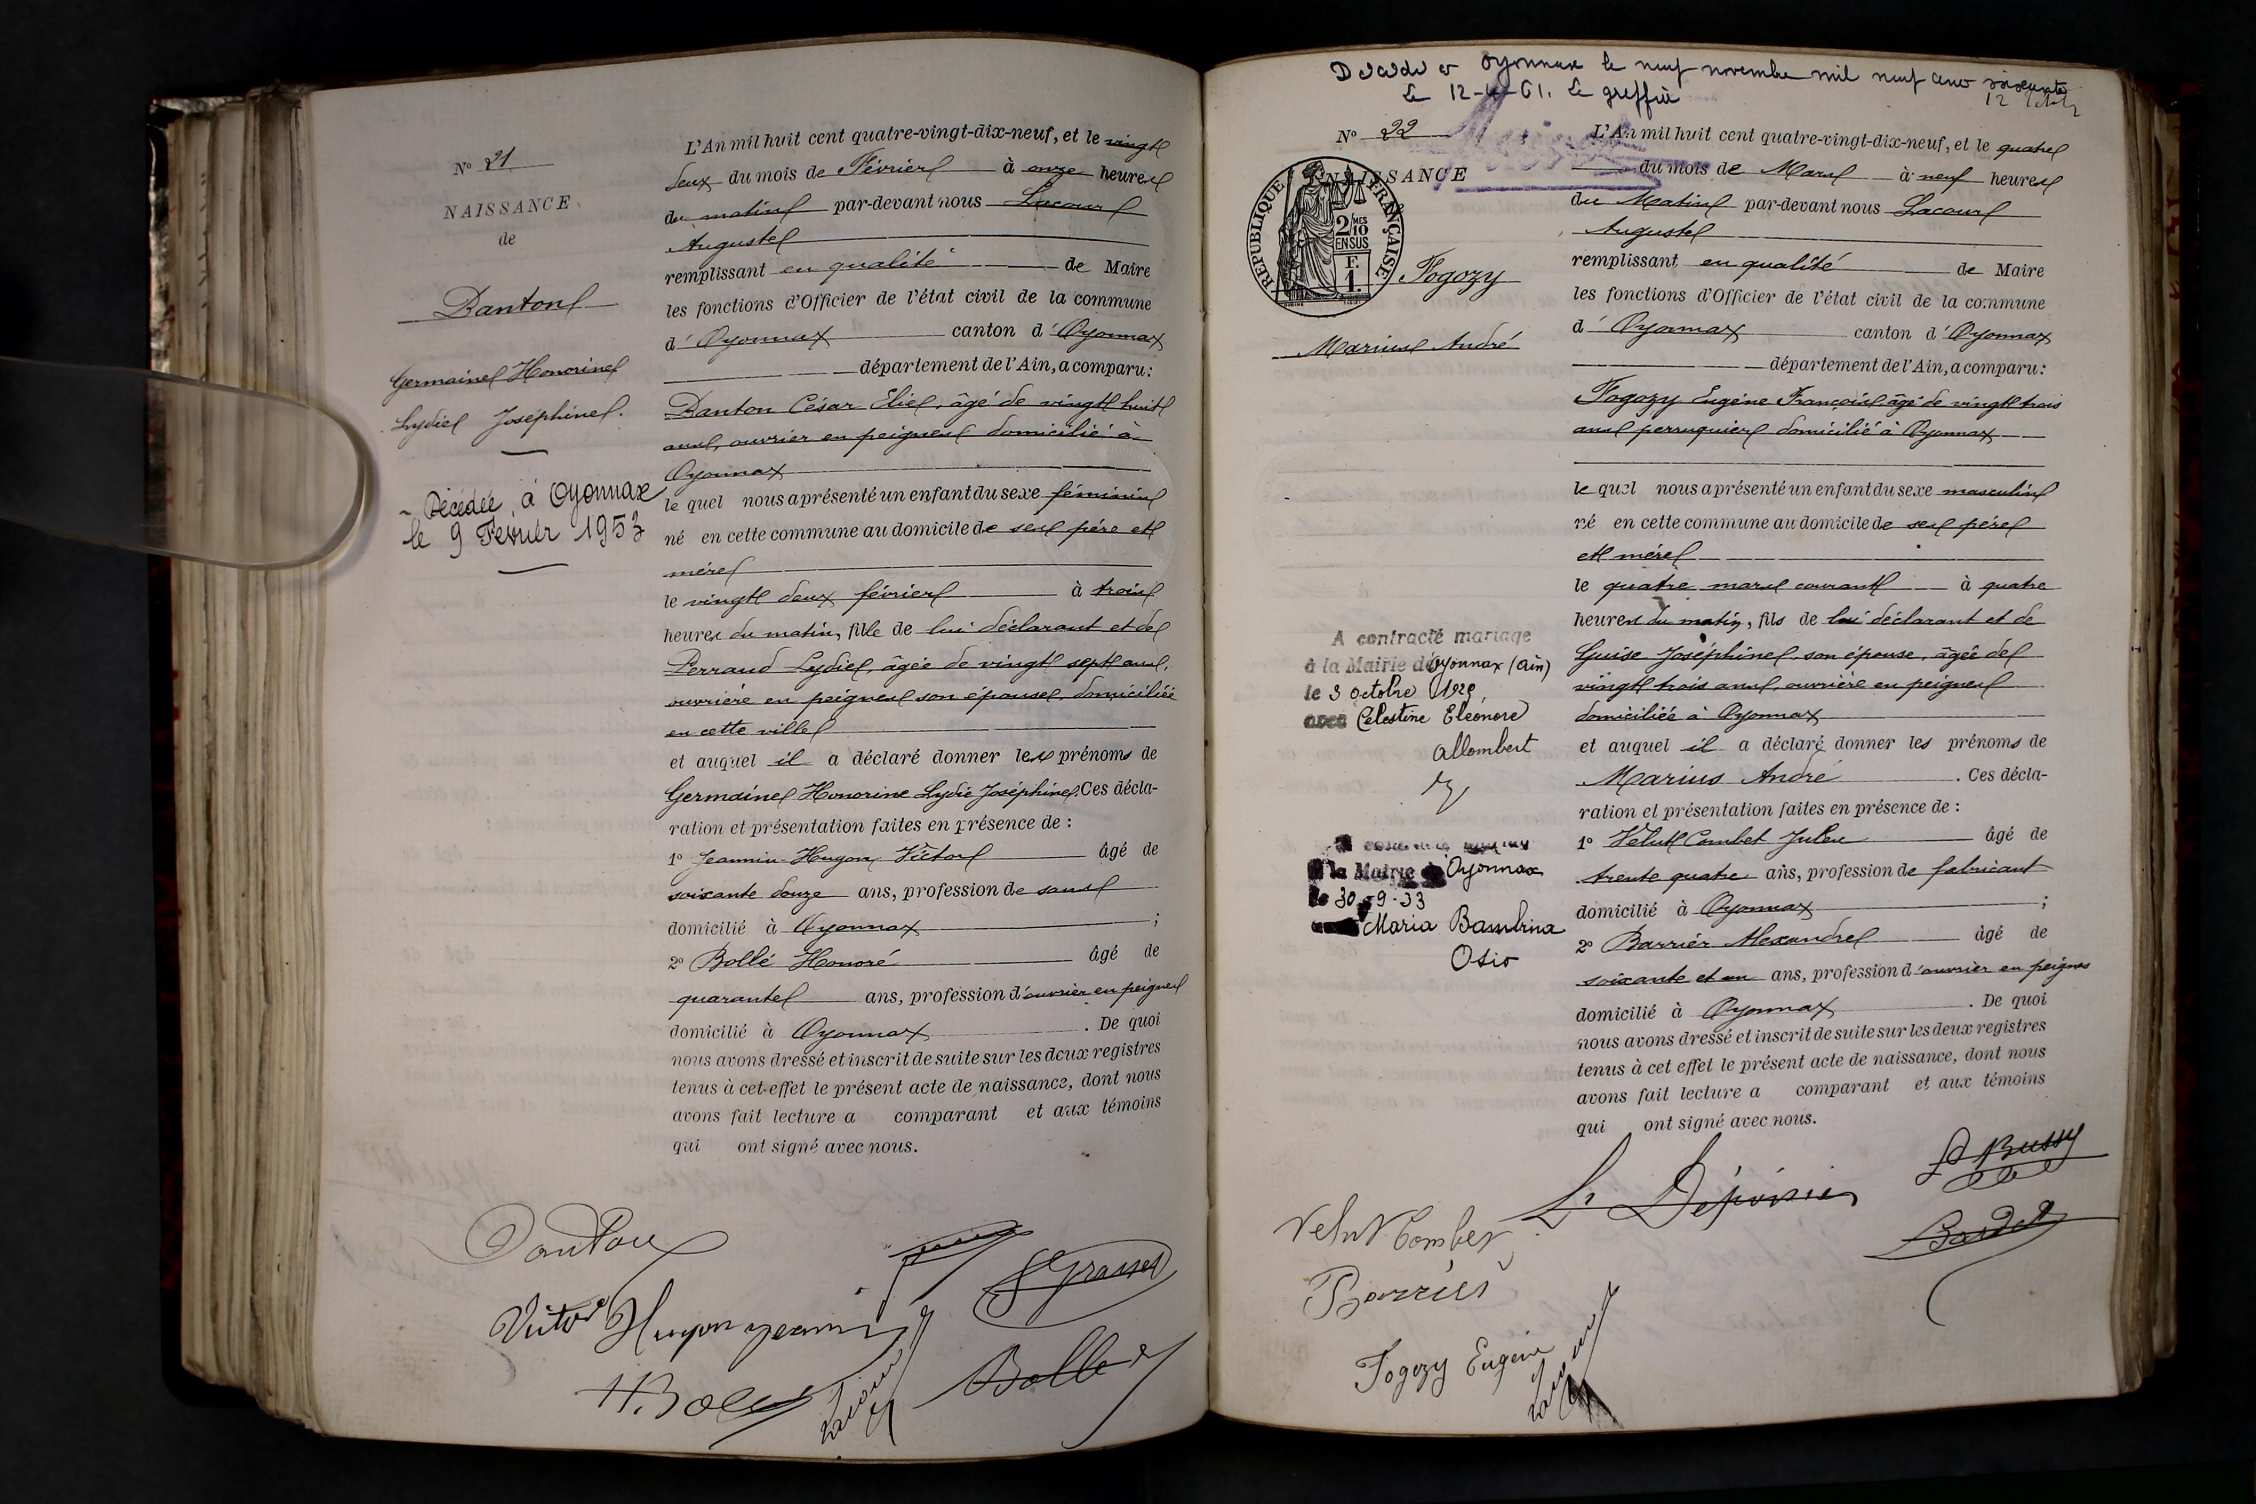 N° 21
NAISSANCE
de
Danton
Germaine Honorine
Lydie Joséphine.
Décédée, à Oyonnax
le 9 Février 1953
L'An mil huit cent quatre-vingt-dix-neuf, et le vingt
deux du mois de Février à onze heures
du matin par-devant nous Lacour
Auguste
remplissant en qualité de Maire
les fonctions d'Officier de l'état civil de la commune
d' Oyonnax canton d' Oyonnax
département de l'Ain, a comparu:
Danton César Elie, âgé de vingt huit
ans, ouvrier en peignes domicilié à
Oyonnax
le quel nous a présenté un enfant du sexe féminin
né en cette commune au domicile de ses père et
mère
le vingt deux février à trois
heures du matin, fille de lui déclarant et de
Perraud Lydie, âgée de vingt sept ans,
ouvrière en peignes son épouse, domiciliée
en cette ville
et auquel il a déclaré donner les prénoms de
Germaine Honorine Lydie Joséphine. Ces décla-
ration et présentation faites en présence de :
1° Jeannin-Hugon Victor âgé de
soixante douze ans, profession de sans
domicilié à Oyonnax ;
2° Bollé Honoré âgé de
quarante ans, profession d'ouvrier en peignes
domicilié à Oyonnax . De quoi
nous avons dressé et inscrit de suite sur les deux registres
tenus à cet effet le présent acte de naissance, dont nous
avons fait lecture a comparant et aux témoins
qui ont signé avec nous.
Danton
Grasset
Victor Hugon Jeannin
H. Bollé
Lacour
Bollé
Décédé à Oyonnax le neuf novembre mil neuf cent soixante
Le 12-4-61. Le greffier
N° 22
NAISSANCE
RÉPUBLIQUE FRANÇAISE
2/10 MES
EN SUS
F.
1.
Fogozy
Marius André
A contracté mariage
à la Mairie d'Oyonnax (Ain)
le 3 octobre 1929
avec Célestine Eléonore
Allombert
la Mairie Oyonnax
le 30-9-33
Maria Bambina
Osio
L'An mil huit cent quatre-vingt-dix-neuf, et le quatre
du mois de Mars à neuf heures
du Matin par-devant nous Lacour
Auguste
remplissant en qualité de Maire
les fonctions d'Officier de l'état civil de la commune
d' Oyonnax canton d' Oyonnax
département de l'Ain, a comparu:
Fogozy Eugène François âgé de vingt trois
ans perruquier domicilié à Oyonnax
le quel nous a présenté un enfant du sexe masculin
né en cette commune au domicile de ses père
et mère
le quatre mars courant à quatre
heures du matin, fils de lui déclarant et de
Guise Joséphine, son épouse, âgée de
vingt trois ans, ouvrière en peignes
domiciliée à Oyonnax
et auquel il a déclaré donner les prénoms de
Marius André . Ces décla-
ration et présentation faites en présence de :
1° Velut Combet Jules âgé de
trente quatre ans, profession de fabricant
domicilié à Oyonnax ;
2° Barrier Alexandre âgé de
soixante et un ans, profession d'ouvrier en peignes
domicilié à Oyonnax . De quoi
nous avons dressé et inscrit de suite sur les deux registres
tenus à cet effet le présent acte de naissance, dont nous
avons fait lecture a comparant et aux témoins
qui ont signé avec nous.
Bussy
Velut Combet
Barrier
Fogozy Eugène
Lacour